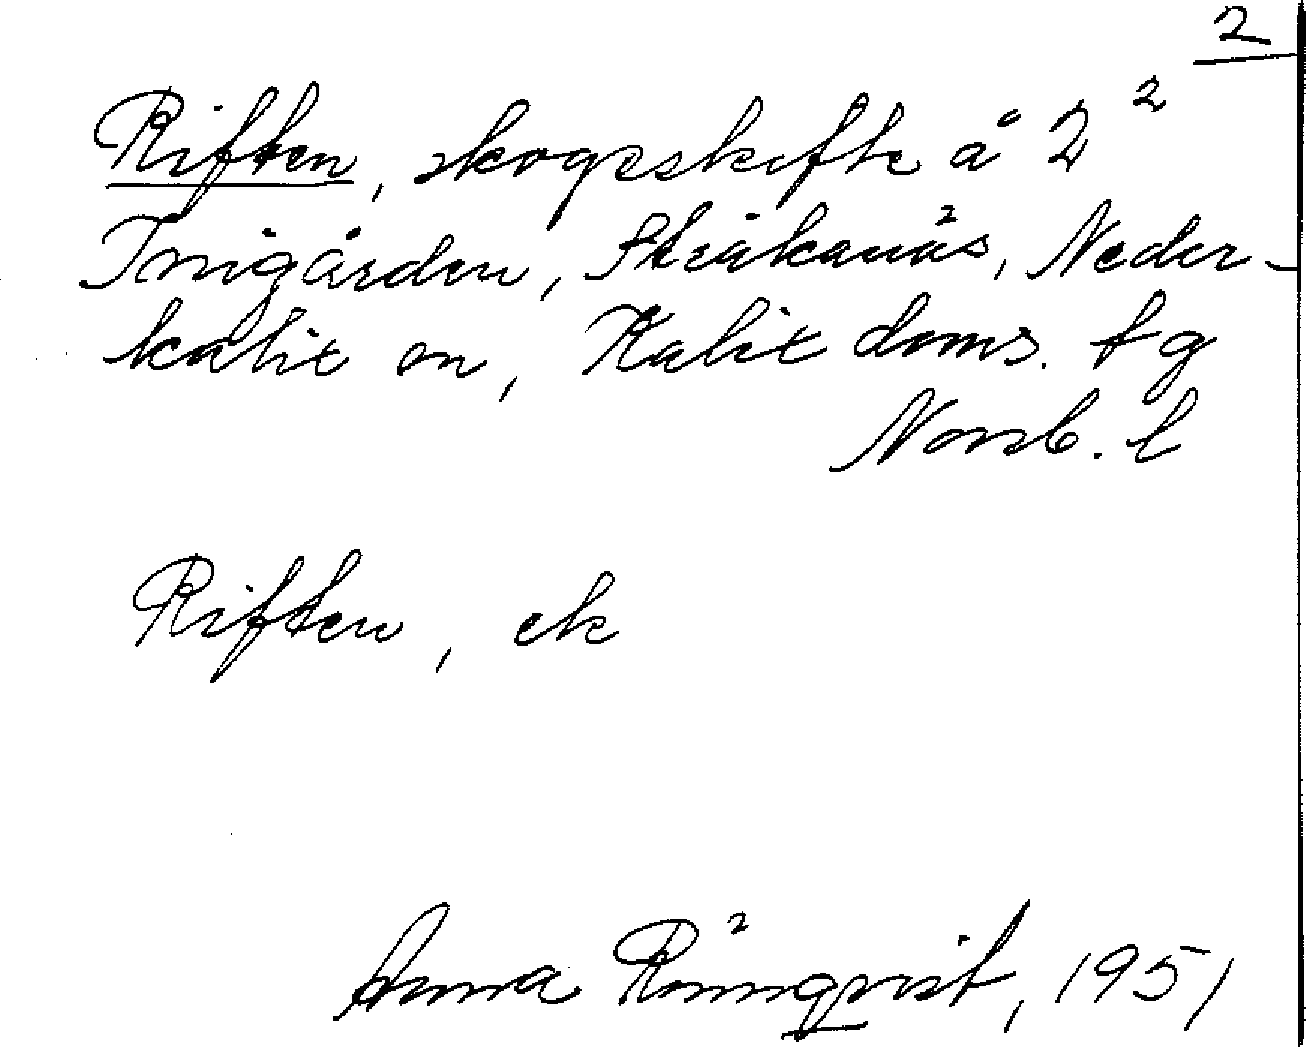 2
Riften, skogsskifte å 2²
Innigården, Stråkanäs, Neder-
kalix sn, Kalix doms. fg
Norrb. l
Riften, ek
Anna Rönnqvist, 1951